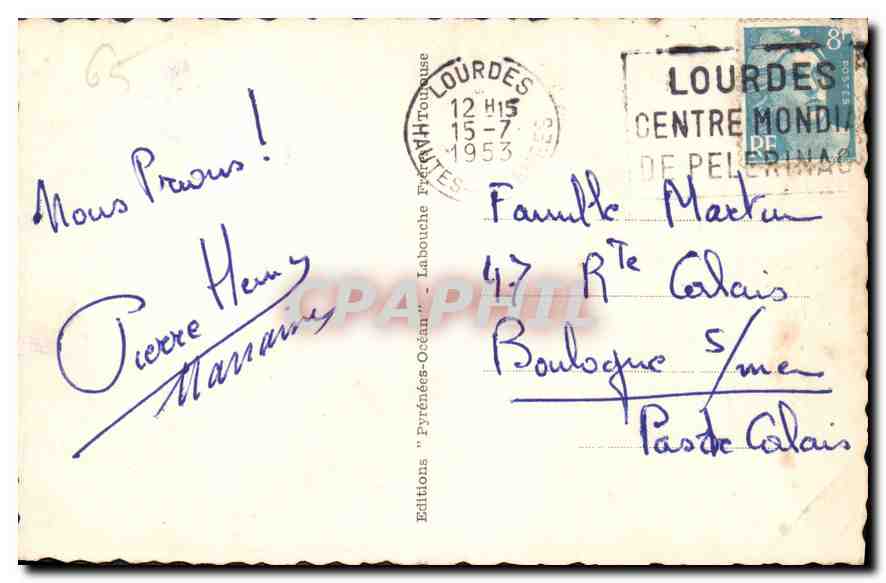 65
Nous Prions !
Pierre Henry
Editions " Pyrénées-Océan " - Labouche Frères - Toulouse
LOURDES
12 H 15
15-7
1953
HAUTES PYRENEES
LOURDES
CENTRE MONDIA
DE PELERINAG
8F
POSTES
RF
Famille Martin
47 Rte Calais
Boulogne s/mer
Pas de Calais
CPAPHIL